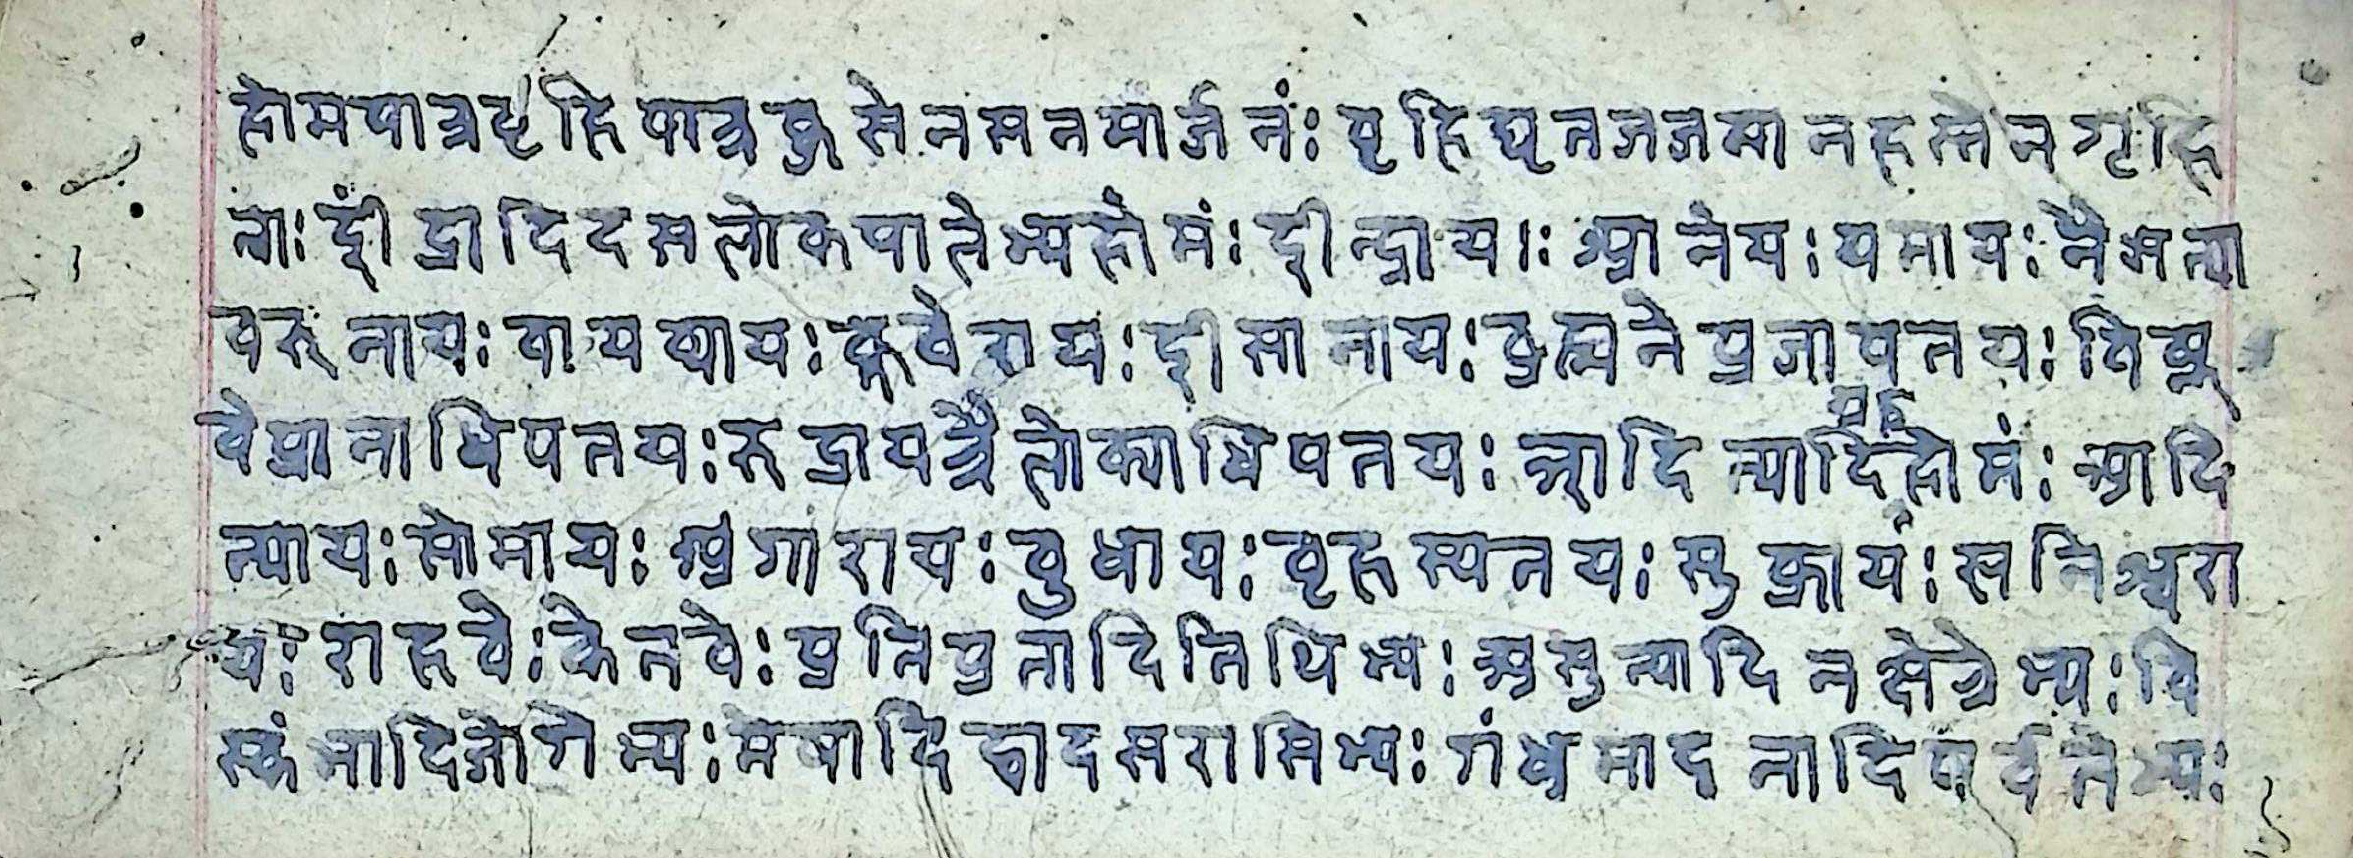 होमपात्रबृहिपात्रकुसेनसनमार्जनं: बृहिघृतजजमानहस्तेनगृहि
त्वा: इंद्रादिदसलोकपालेभ्यहोमं: इन्द्राय।: अग्नेय: यमाय: नैऋत्या
वरुनाय: वायव्याय: कुवेराय: इसानाय: ब्रह्मनेप्रजापतय: विष्नु
वेप्रानाधिपतय: रुद्रायत्रैलोक्याधिपतय: आदित्यादिग्रहहोमं: आदि
त्याय: सोमाय: अंगाराय: वुधाय: वृहस्पतय: सुक्राय: सनिश्चरा
य: राहवे: केतवे: प्रतिप्रतादितिथिभ्य: अस्नुत्यादिनक्षेत्रेभ्य: वि
स्कंभादिजोगेभ्य: मेषादिद्वादसरासिभ्य: गंधमादनादिपर्वतेभ्य: